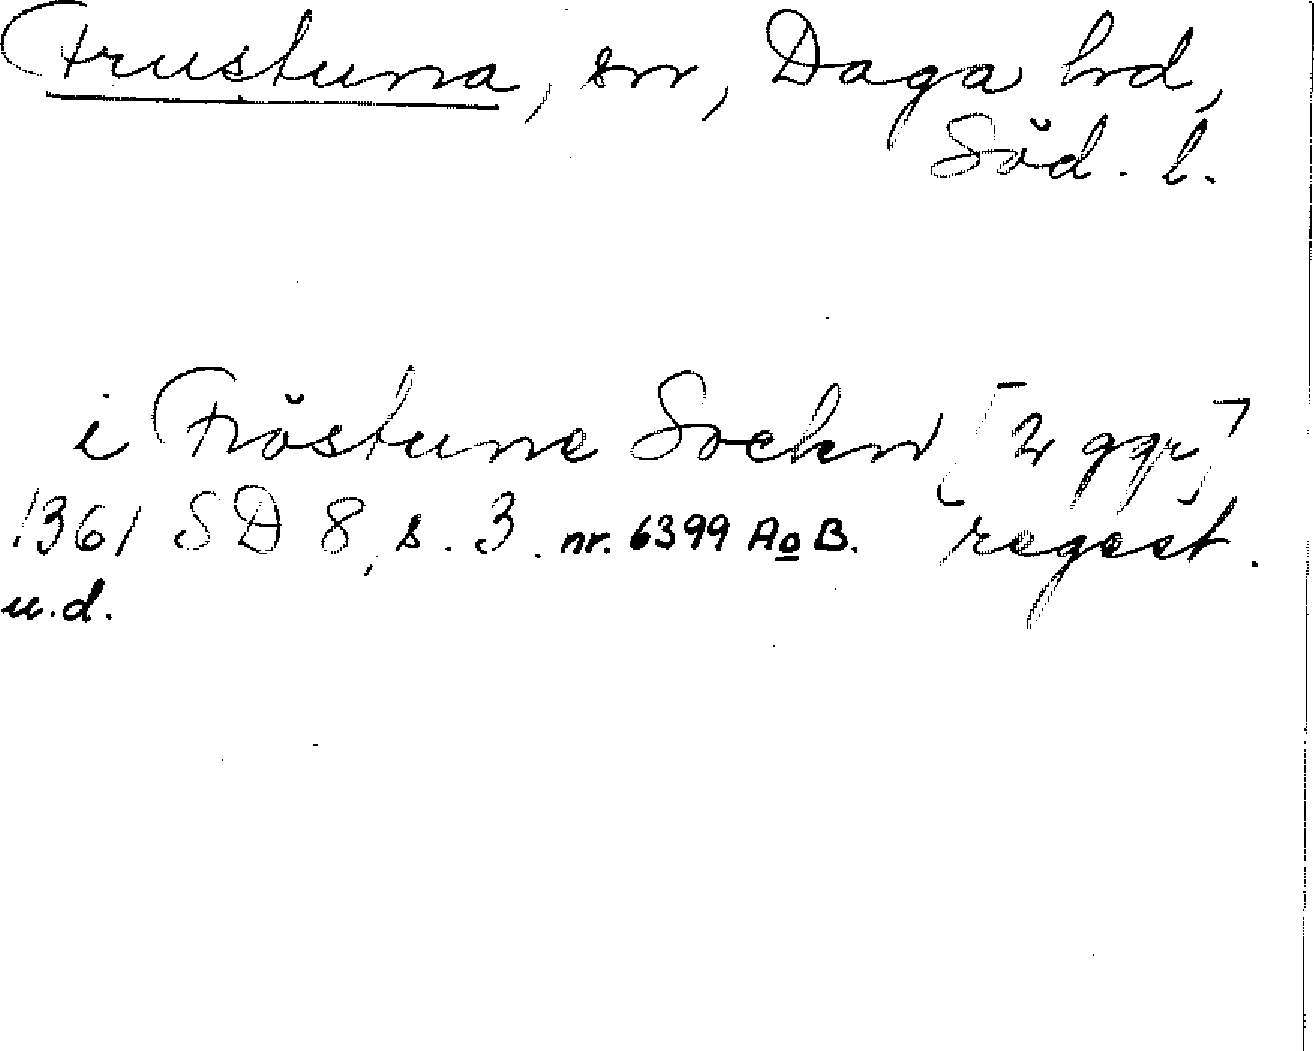 Frustuna, sn, Daga hd,
Söd. l.
i Fröstune Sockn [2 ggr]
1361 SD 8, s. 3. nr. 6399 A o B. regest.
u.d.